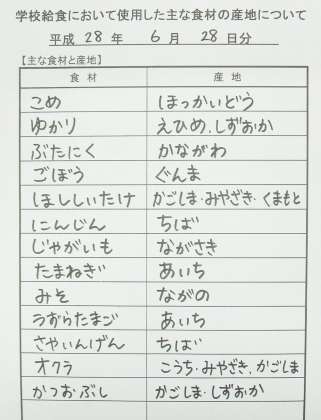 学校給食において使用した主な食材の産地について
平成 28 年 6 月 28 日分
【主な食材と産地】
食 材 産 地
こめ ほっかいどう
ゆかり えひめ、しずおか
ぶたにく かながわ
ごぼう ぐんま
ほししいたけ かごしま・みやざき・くまもと
にんじん ちば
じゃがいも ながさき
たまねぎ あいち
みそ ながの
うずらたまご あいち
さやいんげん ちば
オクラ こうち・みやざき、かごしま
かつおぶし かごしま・しずおか